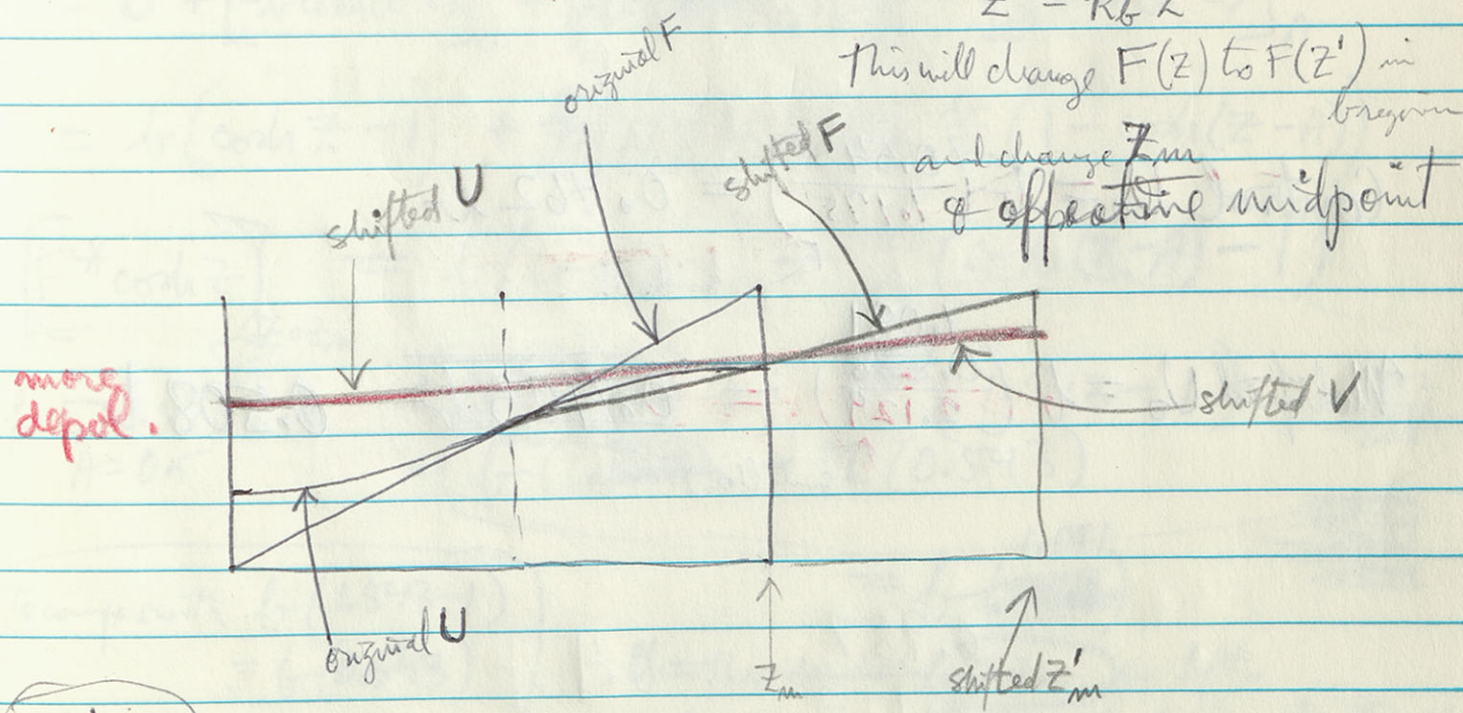 This will change F(Z) to F(Z') in
b region
and change Zm
& effective midpoint
original F
shifted F
shifted U
more
depol.
shifted V
original U
Zm
shifted Z'm